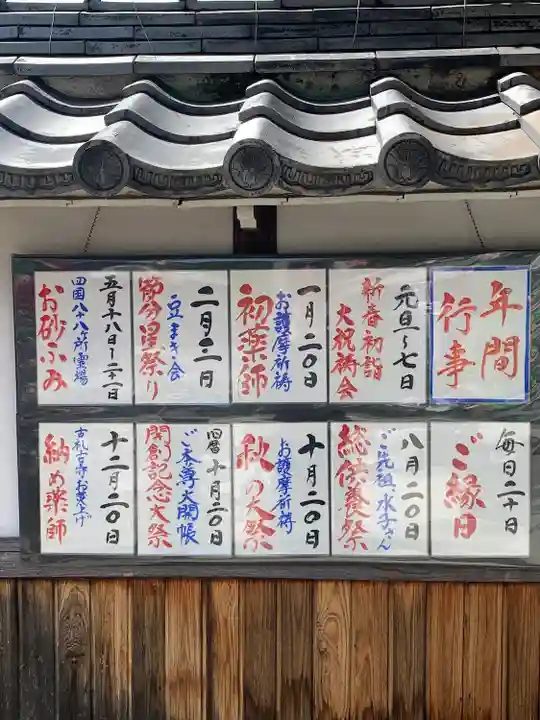 年間
行事
元旦~七日
新春初詣
大祝祷会
一月二〇日
お護摩祈祷
初薬師
二月二日
豆まき会
節分星祭り
五月十八日~二十一日
四国八十八ヶ所霊場
お砂ふみ
毎月二十日
ご縁日
八月二〇日
ご先祖、水子さん
総供養祭
十月二〇日
お護摩祈祷
秋の大祭
旧暦十月二〇日
ご本尊大開帳
開創記念大祭
十二月二〇日
古札古寺お焚上げ
納め薬師